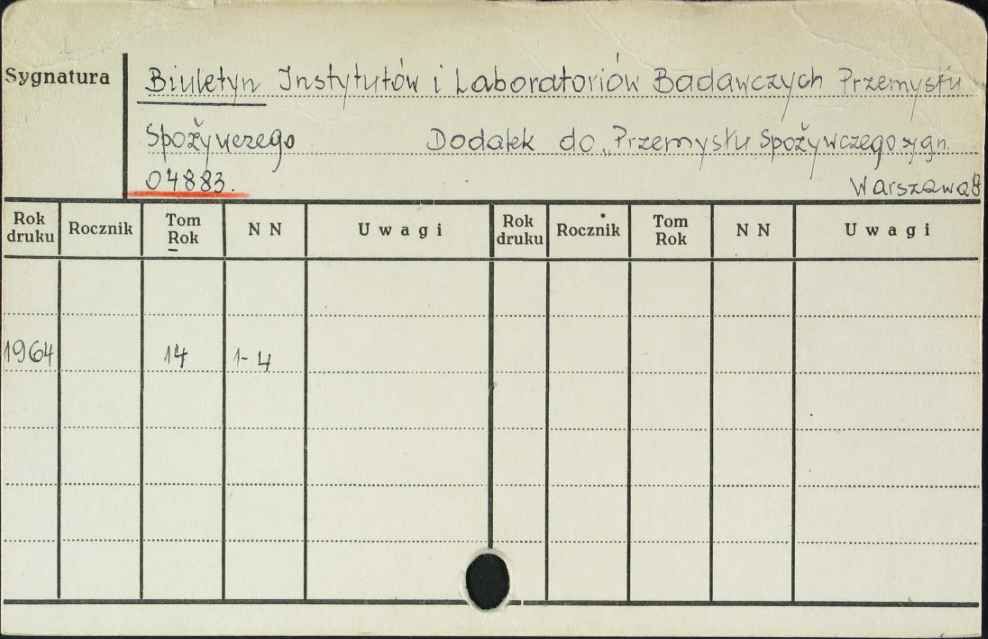 Sygnatura
Biuletyn Instytutów i Laboratoriów Badawczych Przemysłu
Spożywczego Dodatek do „Przemysłu Spożywczego sygn.
04883.
Warszawa
Rok druku Rocznik Tom Rok N N Uwagi Rok druku Rocznik Tom Rok N N Uwagi
1964 14 1-4